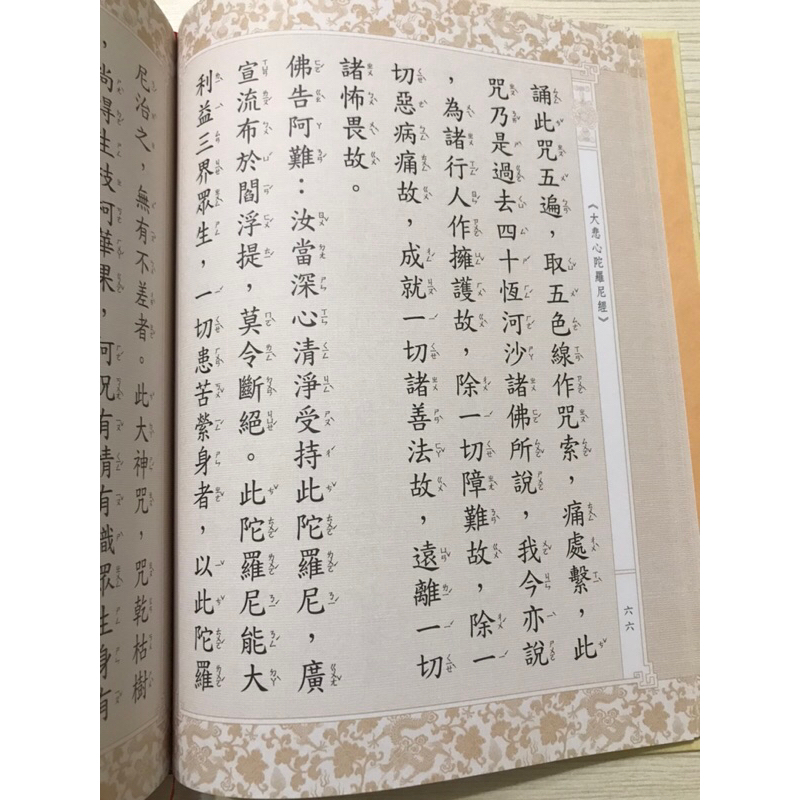 《大悲心陀羅尼經》
六六
誦此咒五遍，取五色線作咒索，痛處繫，此
咒乃是過去四十恆河沙諸佛所說，我今亦說
，為諸行人作擁護故，除一切障難故，除一
切惡病痛故，成就一切諸善法故，遠離一切
諸怖畏故。
佛告阿難：汝當深心清淨受持此陀羅尼，廣
宣流布於閻浮提，莫令斷絕。此陀羅尼能大
利益三界眾生，一切患苦縈身者，以此陀羅
尼治之，無有不差者。此大神咒，咒乾枯樹
，尚得生枝柯華果，何況有情有識眾生身有